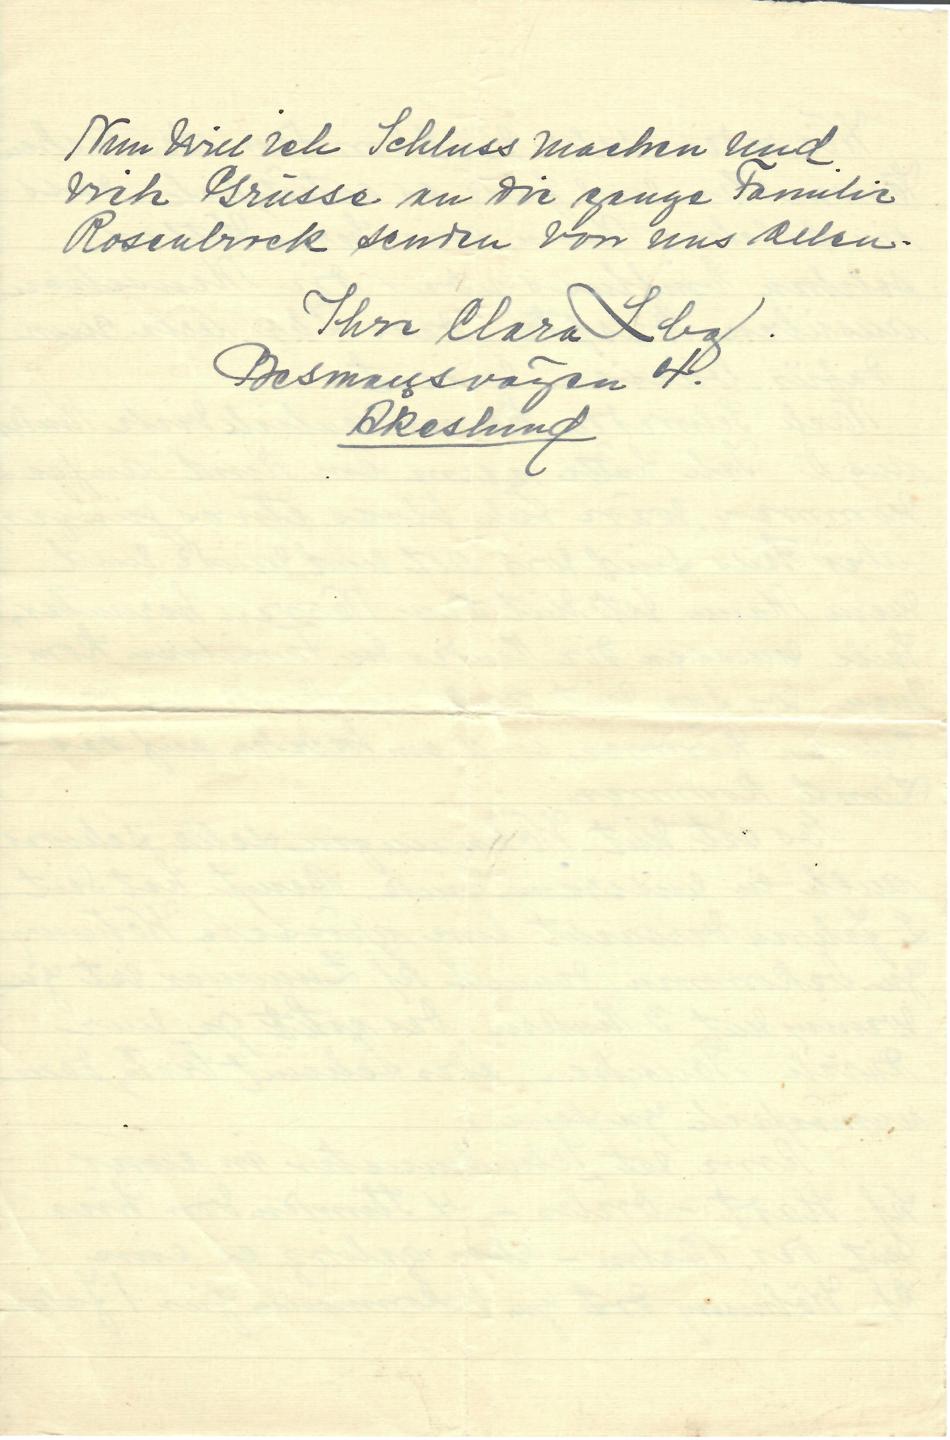 Nun will ich Schluss machen und
viele Grüsse an die ganze Familie
Rosenbrock senden von uns allen.
Ihre Clara
Besmansvägen 4.
Akeslund